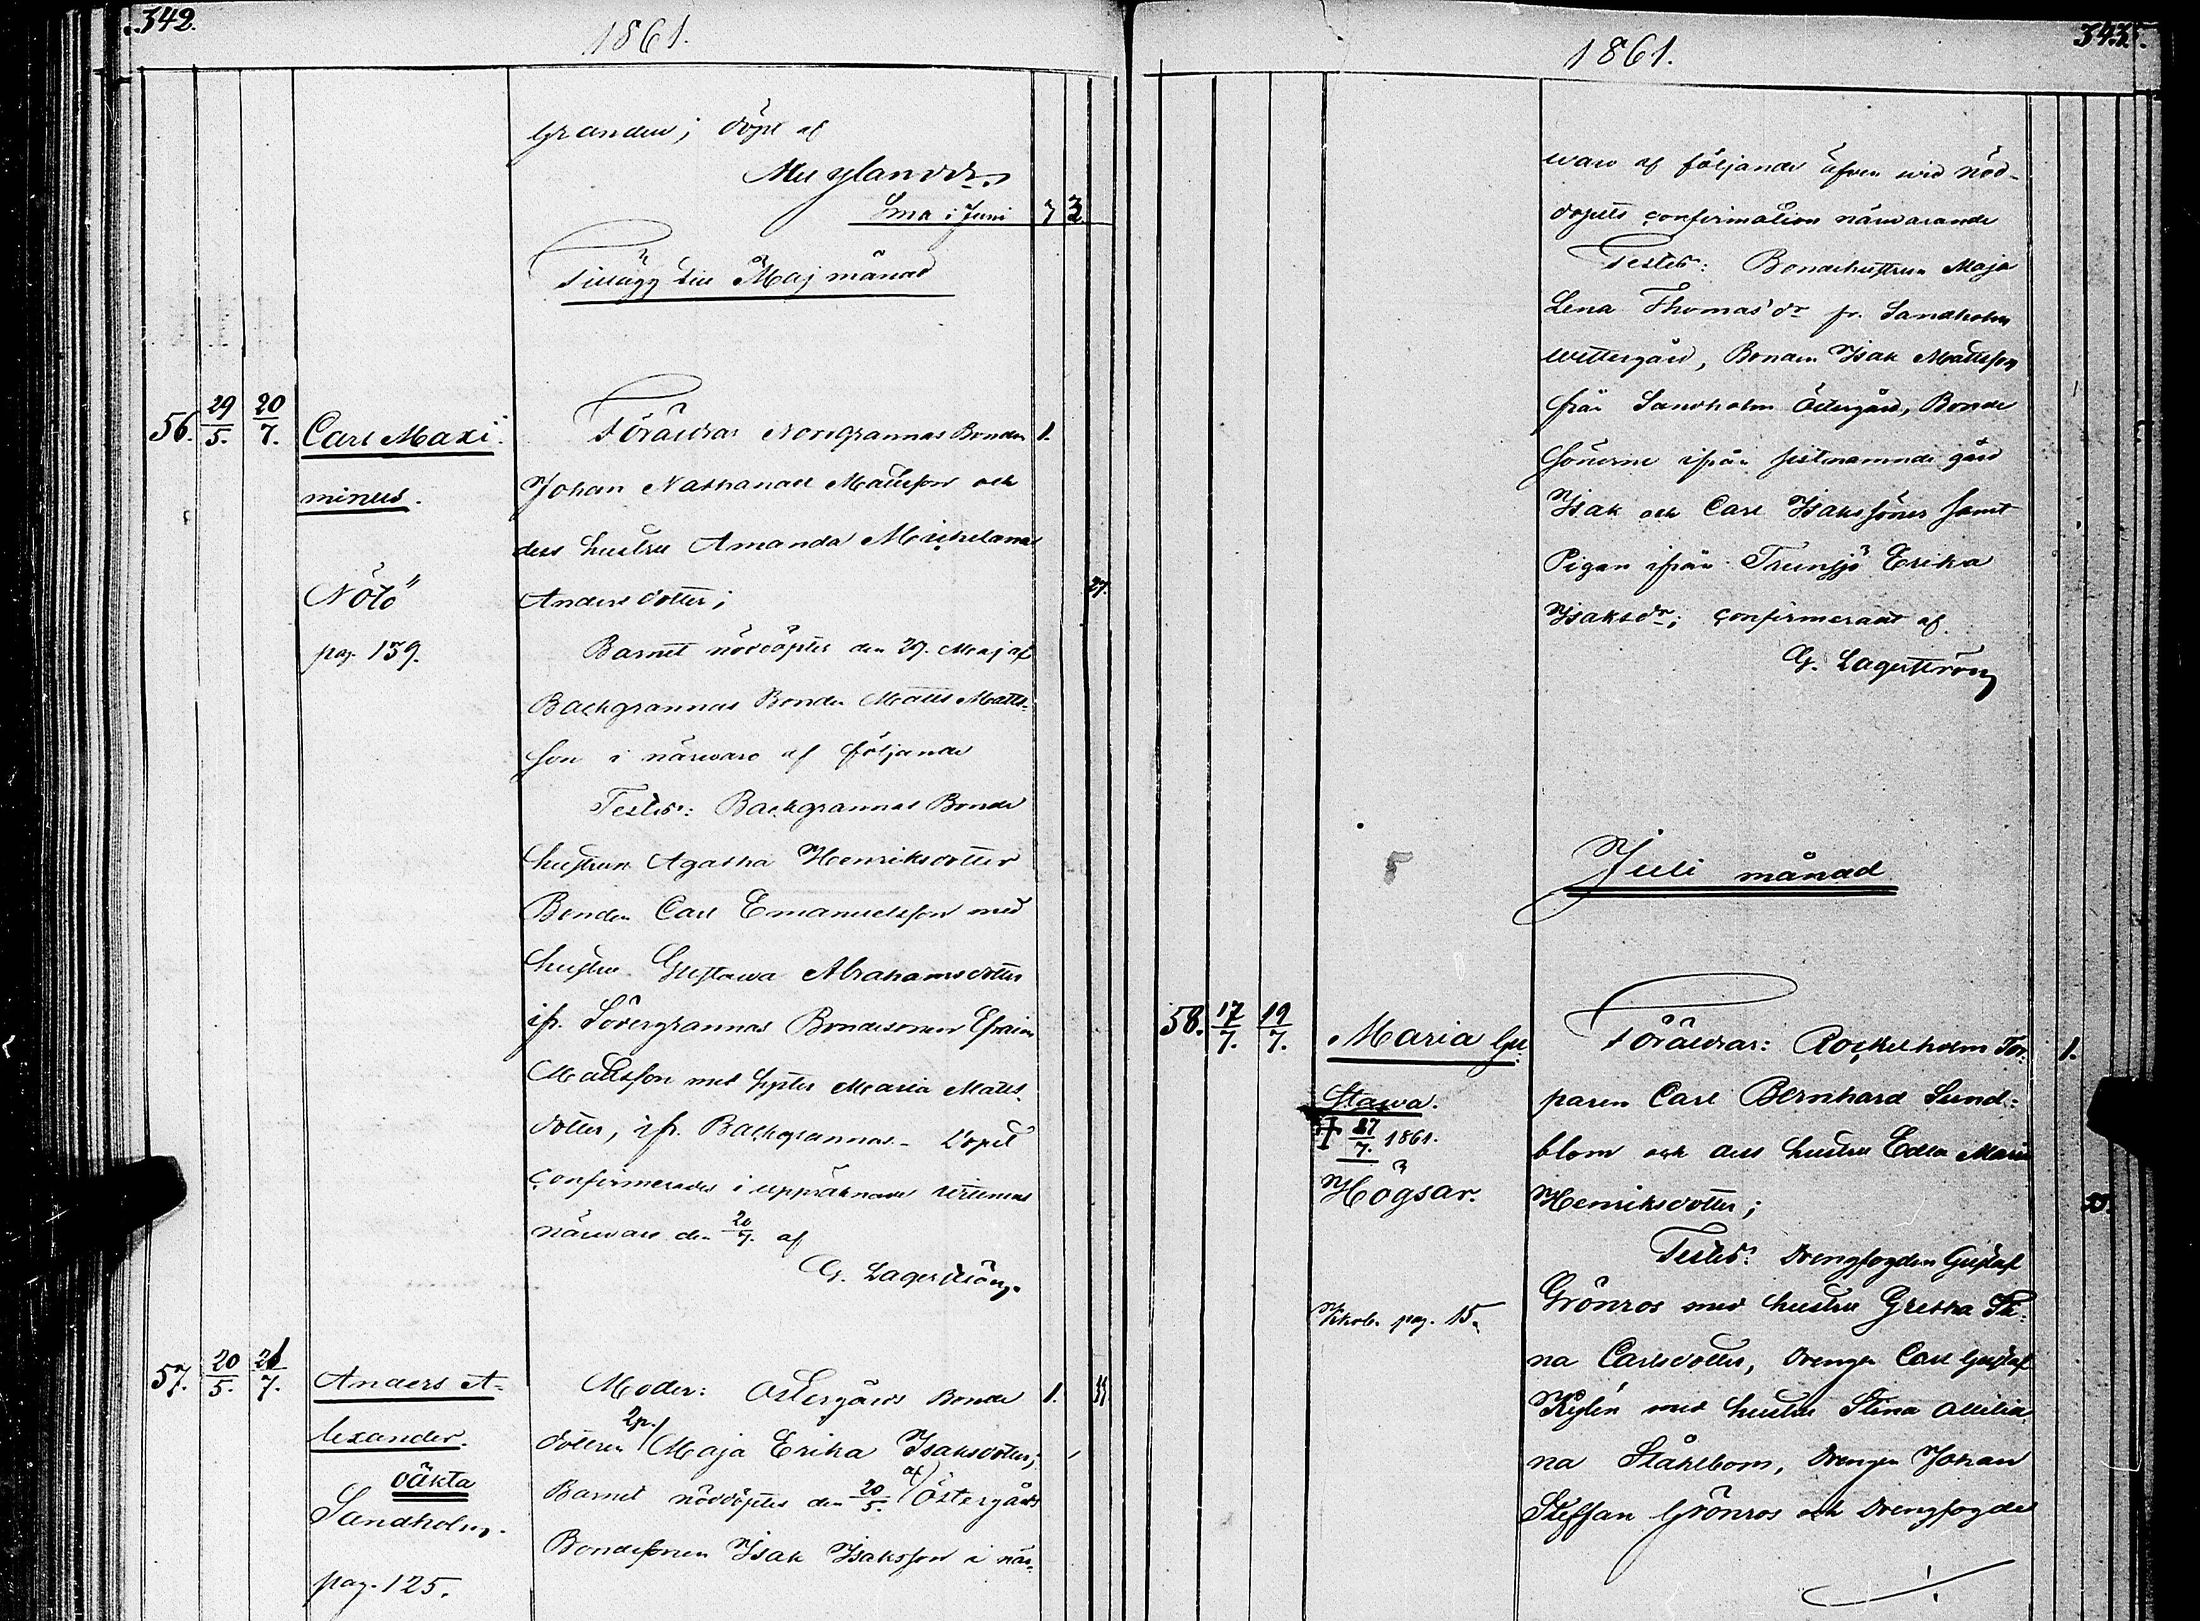 342.
1861.
granden; döpt af
Mus ylander.
Sma i Juni 7 3
Tillägg till Maj månad
56. 29/5. 20/7. Carl Maxi
minus.
Nötö
pag. 139.
Föräldrar Norrgrannas Bonden 1.
Johan Nathanael Mattsson och
dess hustru Amanda Michelina
Anders dotter; 27.
Barnet nöddöptes den 29. Maj af
Backgrannas Bonden Matts Matts-
son i närvaro af följande
Testes: Backgrannas Bonde
hustrun Agatha Henriksdotter
Bonden Carl Emanuelsson med
hustru Gustawa Abrahamsdotter
ifr. Södergrannas Bondesonen Efraim
Mattsson med syster Maria Matts-
dotter, ifr. Backgrannas. Dopet
confirmerades i uppräknade vittnens
närvaro den 20/7. af
G. Lagerström.
57. 20/5. 21/7. Anders A-
lexander.
oäkta
Sandholm.
pag. 125.
Moder: Östergårds Bonde 1. 33
dottren 2p. Maja Erika Isaksdotter;
Barnet nöddöptes den 20/5. af Östergårds
Bondesonen Isak Isaksson i när-
343.
1861.
varo af följande äfven vid nöd-
dopets confirmation närvarande
Testes: Bondehustrun Maja
Lena Thomasdr fr. Sandholm
Westergård, Bonden Isak Mattsson
från Sandholm Östergård, Bonde
sönerne ifrån sistnämnde gård
Isak och Carl Isakssöner samt
Pigan ifrån Trunsjö Erika
Isaksdr; confirmeradt af
G. Lagerström
Juli månad
58. 17/7. 19/7. Maria Gu-
stawa.
† 27/7. 1861.
Högsar.
Kkob. pag. 15.
Föräldrar: Rockelholm Tor- 1.
paren Carl Bernhard Sund-
blom och dess hustru Edla Maria
Henriksdotter;
Testes: Drengfogden Gustaf
Grönros med hustru Gretha Sti-
na Carlsdotter, Drengen Carl Gustaf
Kylén med hustru Stina Ottilia
na Ståhlbom, Drengen Johan
Steffan Grönros och Drengfogde